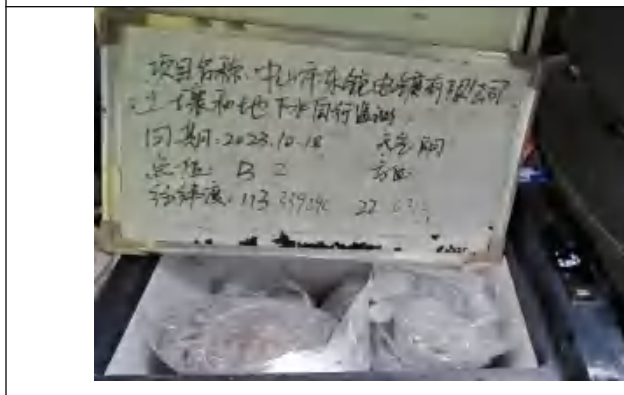 项目名称:中山市东铊电镀有限公司
土壤和地下水自行监测
日期:2023.10.18 天气:阴
点位 B2 方位
经纬度:113.339290 22